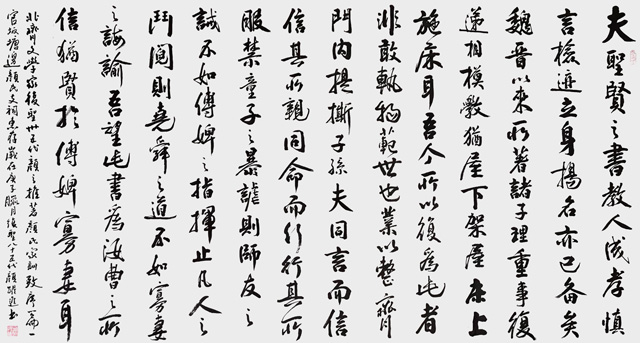 夫聖賢之書教人成孝慎
言檢迹立身揚名亦已备矣
魏晉以來所著諸子理重事復
遞相模斆猶屋下架屋床上
施床耳吾今所以復為此者
非敢軌物範世也業以整齊
門内提撕子孫夫同言而信
信其所親同命而行行其所
服禁童子之暴謔則師友之
誡不如傅婢之指揮止凡人之
鬥鬩則堯舜之道不如寡妻
之誨諭吾望此書為汝曹之所
信猶賢於傅婢寡妻耳
北齊文學家復聖世五代顏之推著顏氏家訓致序篇一
顏氏文祠歲在庚子臘月復聖五代顏書